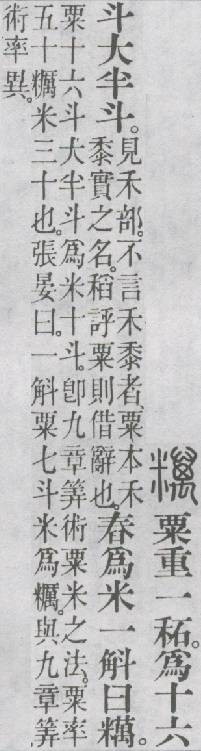 䊪 粟重一䄷。爲十六
斗大半斗。見禾部。不言禾黍者、粟本禾
黍實之名。稻評粟則借辭也。舂爲米一斛曰䊪。
粟十六斗大半斗爲米十斗。卽九章筭術粟米之法。粟率
五十糲米三十也。張晏曰。一斛粟七斗米爲糲。與九章筭
術率異。